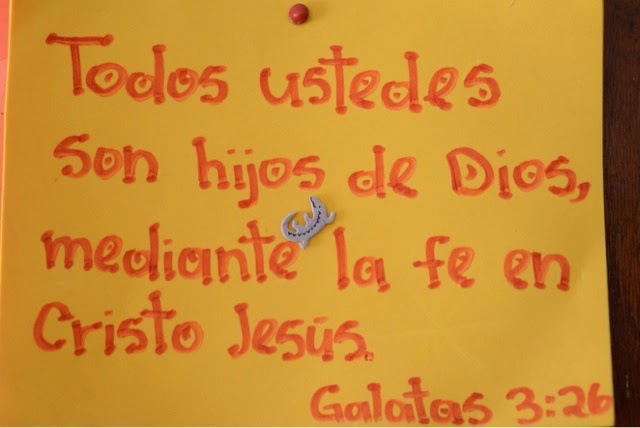 Todos ustedes
son hijos de Dios,
mediante la fe en
Cristo Jesús.
Galatas 3:26